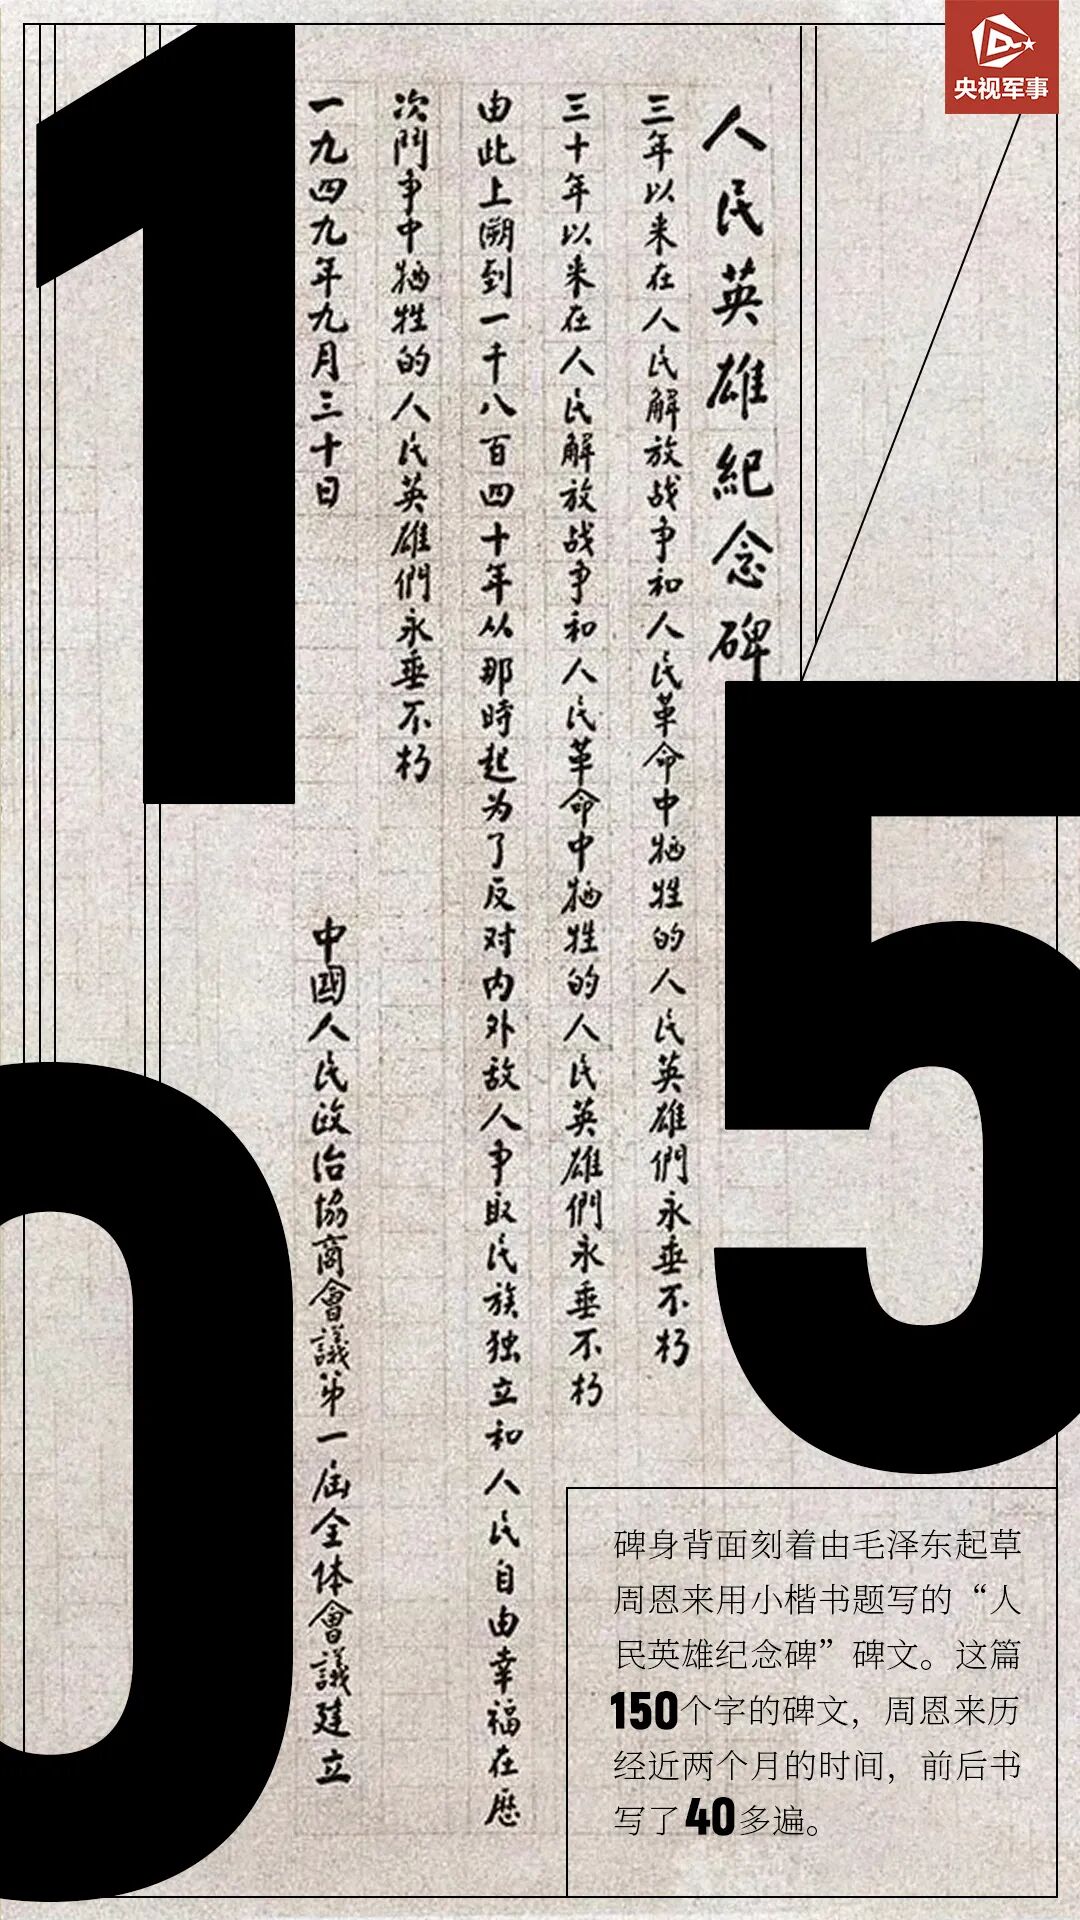 央视军事
1
5
0
人民英雄紀念碑
三年以来在人民解放战争和人民革命中牺牲的人民英雄們永垂不朽
三十年以来在人民解放战争和人民革命中牺牲的人民英雄們永垂不朽
由此上溯到一千八百四十年从那時起为了反对内外敌人争取民族独立和人民自由幸福在歷
次鬥争中牺牲的人民英雄們永垂不朽
一九四九年九月三十日 中國人民政治協商會議第一届全体會議建立
碑身背面刻着由毛泽东起草
周恩来用小楷书题写的“人
民英雄纪念碑”碑文。这篇
150个字的碑文，周恩来历
经近两个月的时间，前后书
写了40多遍。